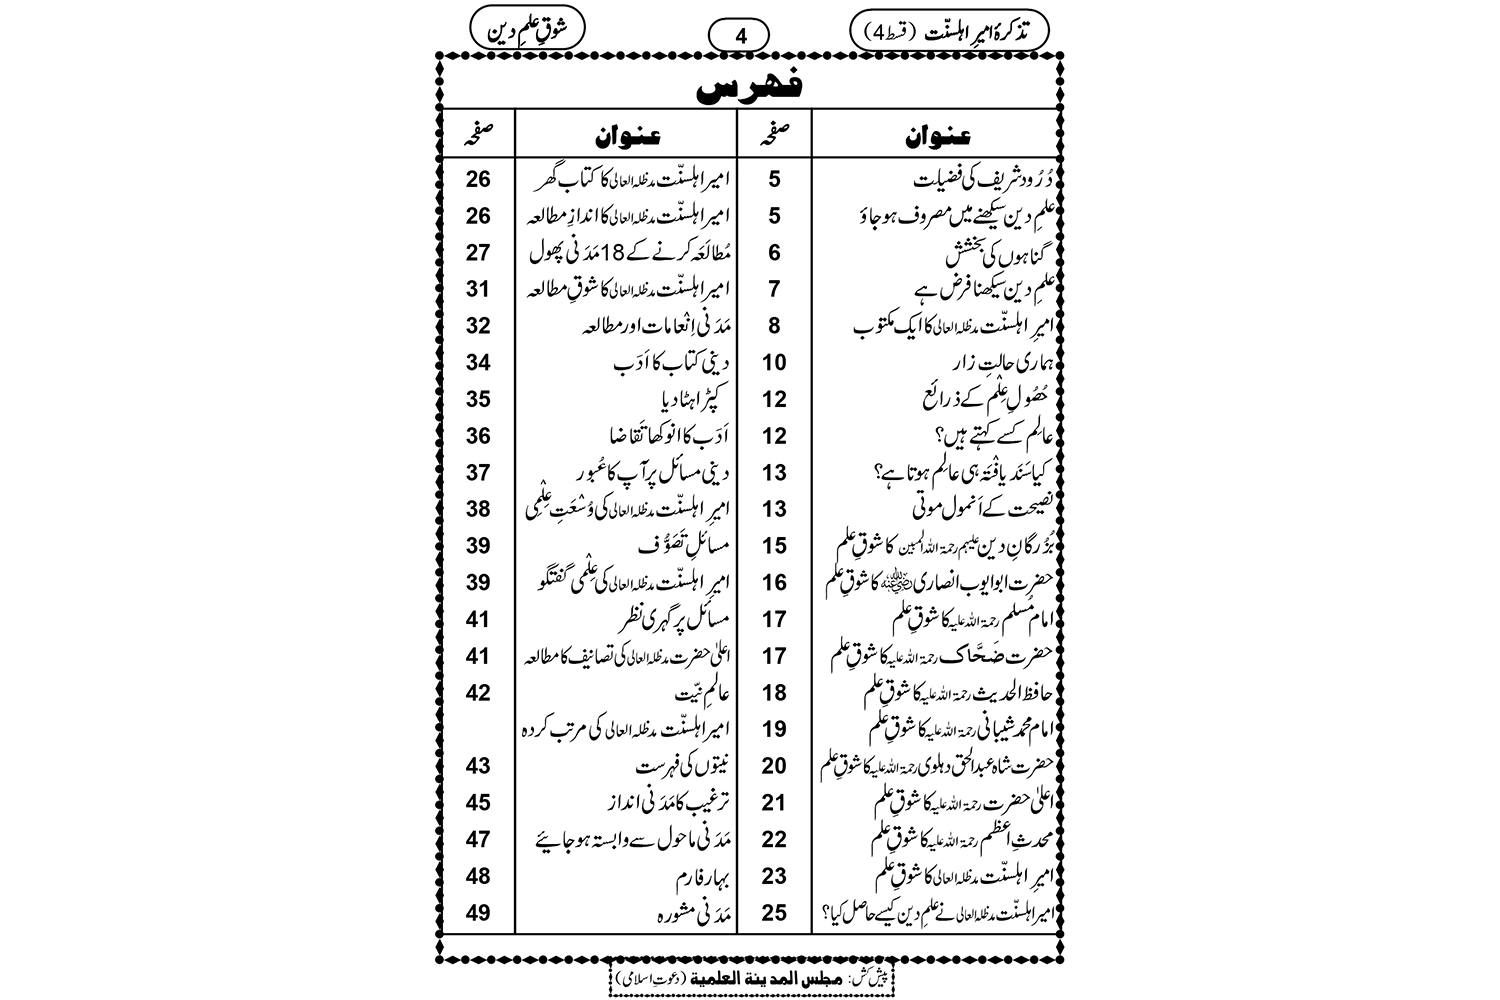 تذکرۂ امیرِ اہلسنّت (قسط 4)
4
شوقِ علمِ دین
فہرس
عنوان صفحہ عنوان صفحہ
دُرُود شریف کی فضیلت 5
علمِ دین سیکھنے میں مصروف ہوجاؤ 5
گناہوں کی بخشش 6
علمِ دین سیکھنا فرض ہے 7
امیرِ اہلسنّت مدظلہ العالی کا ایک مکتوب 8
ہماری حالتِ زار 10
حُصُولِ عِلْم کے ذرائع 12
عالِم کسے کہتے ہیں؟ 12
کیا سَنَد یافْتَہ ہی عالِم ہوتا ہے؟ 13
نصیحت کے اَنمول موتی 13
بُزُرگانِ دین علیہم رحمۃ اللہ المبین کا شوقِ علم 15
حضرت ابو ایوب انصاری رضی اللہ عنہ کا شوقِ علم 16
امام مُسلم رحمۃ اللہ علیہ کا شوقِ علم 17
حضرت ضَحَّاک رحمۃ اللہ علیہ کا شوقِ علم 17
حافظ الحدیث رحمۃ اللہ علیہ کا شوقِ علم 18
امام محمد شیبانی رحمۃ اللہ علیہ کا شوقِ علم 19
حضرت شاہ عبدالحق دہلوی رحمۃ اللہ علیہ کا شوقِ علم 20
اعلیٰ حضرت رحمۃ اللہ علیہ کا شوقِ علم 21
محدثِ اعظم رحمۃ اللہ علیہ کا شوقِ علم 22
امیرِ اہلسنّت مدظلہ العالی کا شوقِ علم 23
امیر اہلسنّت مدظلہ العالی نے علمِ دین کیسے حاصل کیا؟ 25
امیر اہلسنّت مدظلہ العالی کا کتاب گھر 26
امیر اہلسنّت مدظلہ العالی کا اندازِ مطالعہ 26
مُطالَعَہ کرنے کے 18 مَدَنی پھول 27
امیر اہلسنّت مدظلہ العالی کا شوقِ مطالعہ 31
مَدَنی اِنْعامات اور مطالعہ 32
دینی کتاب کا اَدَب 34
کپڑا ہٹا دیا 35
اَدَب کا انوکھا تَقاضا 36
دینی مسائل پر آپ کا عُبور 37
امیرِ اہلسنّت مدظلہ العالی کی وُسْعَتِ عِلْمِی 38
مسائلِ تَصَوُّف 39
امیرِ اہلسنّت مدظلہ العالی کی عِلْمی گفتگو 39
مسائل پر گہری نظر 41
اعلیٰ حضرت مدظلہ العالی کی تصانیف کا مطالعہ 41
عالمِ نیّت 42
امیر اہلسنّت مدظلہ العالی کی مرتب کردہ
نیتوں کی فہرست 43
ترغیب کا مَدَنی انداز 45
مَدَنی ماحول سے وابستہ ہوجائیے 47
بہار فارم 48
مَدَنی مشورہ 49
پیش کش: مجلس المدینۃ العلمیۃ (دعوتِ اسلامی)